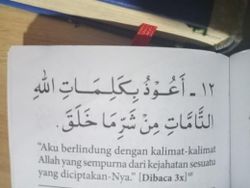 ١٢ - أَعُوْذُ بِكَلِمَاتِ اللهِ
التَّامَّاتِ مِنْ شَرِّ مَا خَلَقَ.
"Aku berlindung dengan kalimat-kalimat
Allah yang sempurna dari kejahatan sesuatu
yang diciptakan-Nya." [Dibaca 3x]